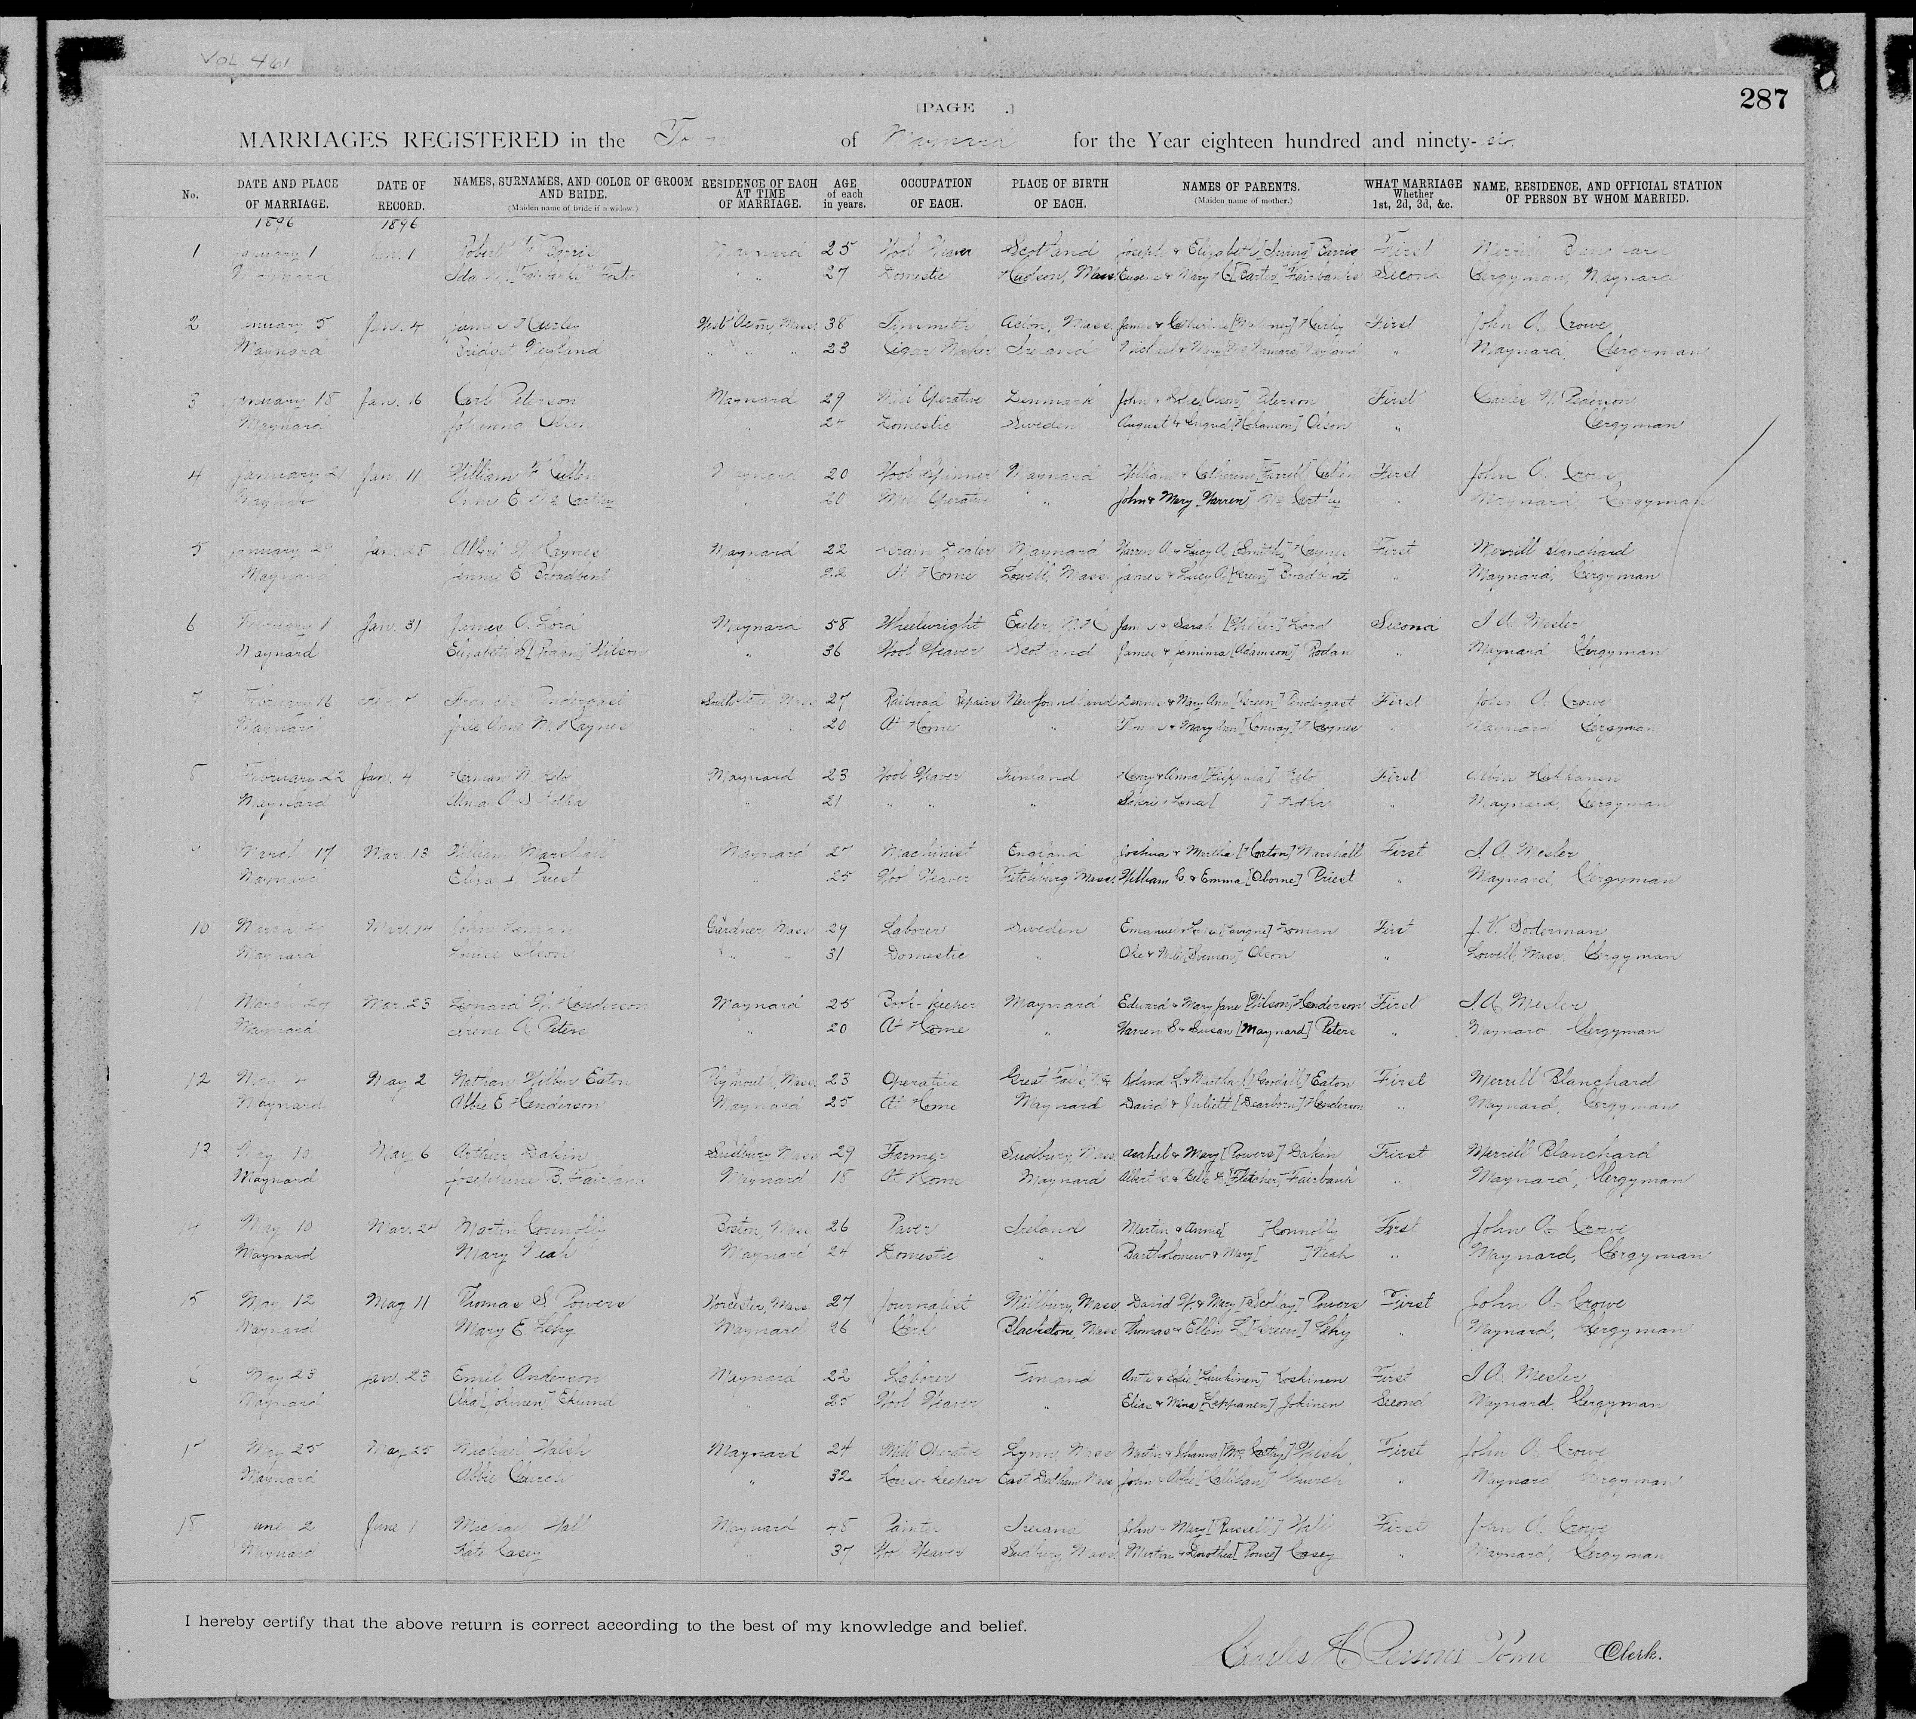 VOL 461
287
[PAGE .]
MARRIAGES REGISTERED in the Town of Maynard for the Year eighteen hundred and ninety-six
No. DATE AND PLACE OF MARRIAGE. DATE OF RECORD. NAMES, SURNAMES, AND COLOR OF GROOM AND BRIDE. (Maiden name of bride if a widow.) RESIDENCE OF EACH AT TIME OF MARRIAGE. AGE of each in years. OCCUPATION OF EACH. PLACE OF BIRTH OF EACH. NAMES OF PARENTS. (Maiden name of mother.) WHAT MARRIAGE Whether 1st, 2d, 3d, &c. NAME, RESIDENCE, AND OFFICIAL STATION OF PERSON BY WHOM MARRIED.
1896 1896
1 January 1 Jan. 1 Robert Maynard 25 Wool Weaver Scotland Joseph & Elizabeth [Irving] First Merrill Blanchard
Maynard Ida " 27 Domestic Hudson, Mass. Eugene & Mary [Carter] Fairbanks Second Clergyman, Maynard
2 January 5 Jan. 4 James Hurley West Acton, Mass. 38 Tinsmith Acton, Mass. James & Catherine Hurley First John A. Crowe
Maynard Bridget Neyland " " " 23 Cigar Maker Ireland Michael & Mary Neyland " Maynard, Clergyman
3 January 18 Jan. 16 Carl Peterson Maynard 29 Mill Operative Denmark John & Peterson First
Maynard Johanna Olson " 24 Domestic Sweden August & Olson " Clergyman
4 January 21 Jan. 11 William Cullen Maynard 20 Wool Spinner Maynard William & Catherine [Farrell] Cullen First John A. Crowe,
Maynard Annie E. McCarthy " 20 Mill Operative " John & Mary [Warren] McCarthy " Maynard Clergyman
5 January 29 Jan. 28 Albert H. Haynes Maynard 22 Grain Dealer Maynard Warren A. & Lucy A. [Smith] Haynes First Merrill Blanchard
Maynard Jennie E. Broadbent " 22 At Home Lowell, Mass. James & Lucy A. [Green] Broadbent " Maynard, Clergyman
6 February 1 Jan. 31 James A. Lord Maynard 58 Wheelwright Exeter, N.H. James & Sarah Lord Second I. A. Mesler
Maynard Elizabeth Wilson " 36 Wool Weaver Scotland James & Jemima [Adamson] Rodan " Maynard Clergyman
7 February 16 Francis Pendergast Mass 27 Railroad Repairs Newfoundland Dennis & Mary Ann [Green] Pendergast First John A. Crowe
Maynard Ann M. Haynes " " 20 At Home " Thomas & Mary Ann [Conway] Haynes " Maynard Clergyman
8 February 22 Jan. 4 Herman Maynard 23 Wool Weaver Finland Henry & Anna First
Maynard Alma 21 " " " [ ] " Maynard, Clergyman
9 March 17 Mar. 13 William Marshall Maynard Machinist England Joshua & Martha Marshall First I. A. Mesler
Maynard Eliza Priest " 25 Wool Weaver Fitchburg Mass. William C. & Emma [Oborne] Priest " Maynard, Clergyman
10 March Mar. 14 John Gardner Mass 29 Laborer Sweden Emanuel & First J. V. Soderman
Maynard Louise Olson " " 31 Domestic " Ole & [Svenson] Olson " Lowell, Mass. Clergyman
11 March 24 Mar. 23 Leonard H. Henderson Maynard 25 Book-keeper Maynard Edward & Mary Jane [Wilson] Henderson First I. A. Mesler
Maynard Irene A. Peters " 20 At Home " Warren S. & Susan [Maynard] Peters " Maynard Clergyman
12 May 4 May 2 Nathan Wilbur Eaton Plymouth, Mass. 23 Operative Great Falls, N.H. & Martha [Goodall] Eaton First Merrill Blanchard
Maynard Abbie E. Henderson Maynard 25 At Home Maynard David & Juliett [Dearborn] Henderson " Maynard, Clergyman
13 May 10 May 6 Arthur Dakin Sudbury Mass 29 Farmer Sudbury, Mass. & Mary [Powers] Dakin First Merrill Blanchard
Maynard Josephine B. Fairbank Maynard 18 At Home Maynard Albert & [Fletcher] Fairbank " Maynard, Clergyman
14 May 10 Mar. 24 Martin Connolly Boston, Mass 26 Paver Ireland Martin & Annie [ ] Connolly First John A. Crowe
Maynard Mary Neah Maynard 24 Domestic " Bartholomew & Mary [ ] Neah " Maynard, Clergyman
15 May 12 May 11 Thomas S. Powers Worcester, Mass. 27 Journalist Millbury, Mass. David & Mary Powers First John A. Crowe
Maynard Mary E. Lehy Maynard 26 Clerk Blackstone, Mass Thomas & Ellen L. [Green] Lehy " Maynard, Clergyman
16 May 23 Jan. 23 Emil Anderson Maynard 22 Laborer Finland Koskinen First I. A. Mesler
Maynard [Johinen] Eklund " 25 Wool Weaver " Elias & Mina [Leppanen] Johinen Second Maynard, Clergyman
17 May 25 May 25 Michael Walsh Maynard 24 Mill Operative Lynn, Mass Martin & Johanna [McCarthy] Walsh, First John A. Crowe
Maynard Abbie Church " 32 House-keeper East Dedham Mass John & Abbie Church " Maynard Clergyman
18 June 2 June 1 Michael Hall Maynard 48 Painter Ireland John & Mary [Russell] Hall First John A. Crowe
Maynard Kate Casey " 37 Wool Weaver Sudbury, Mass. Casey " Maynard, Clergyman
I hereby certify that the above return is correct according to the best of my knowledge and belief.
Charles H. Persons Town Clerk.